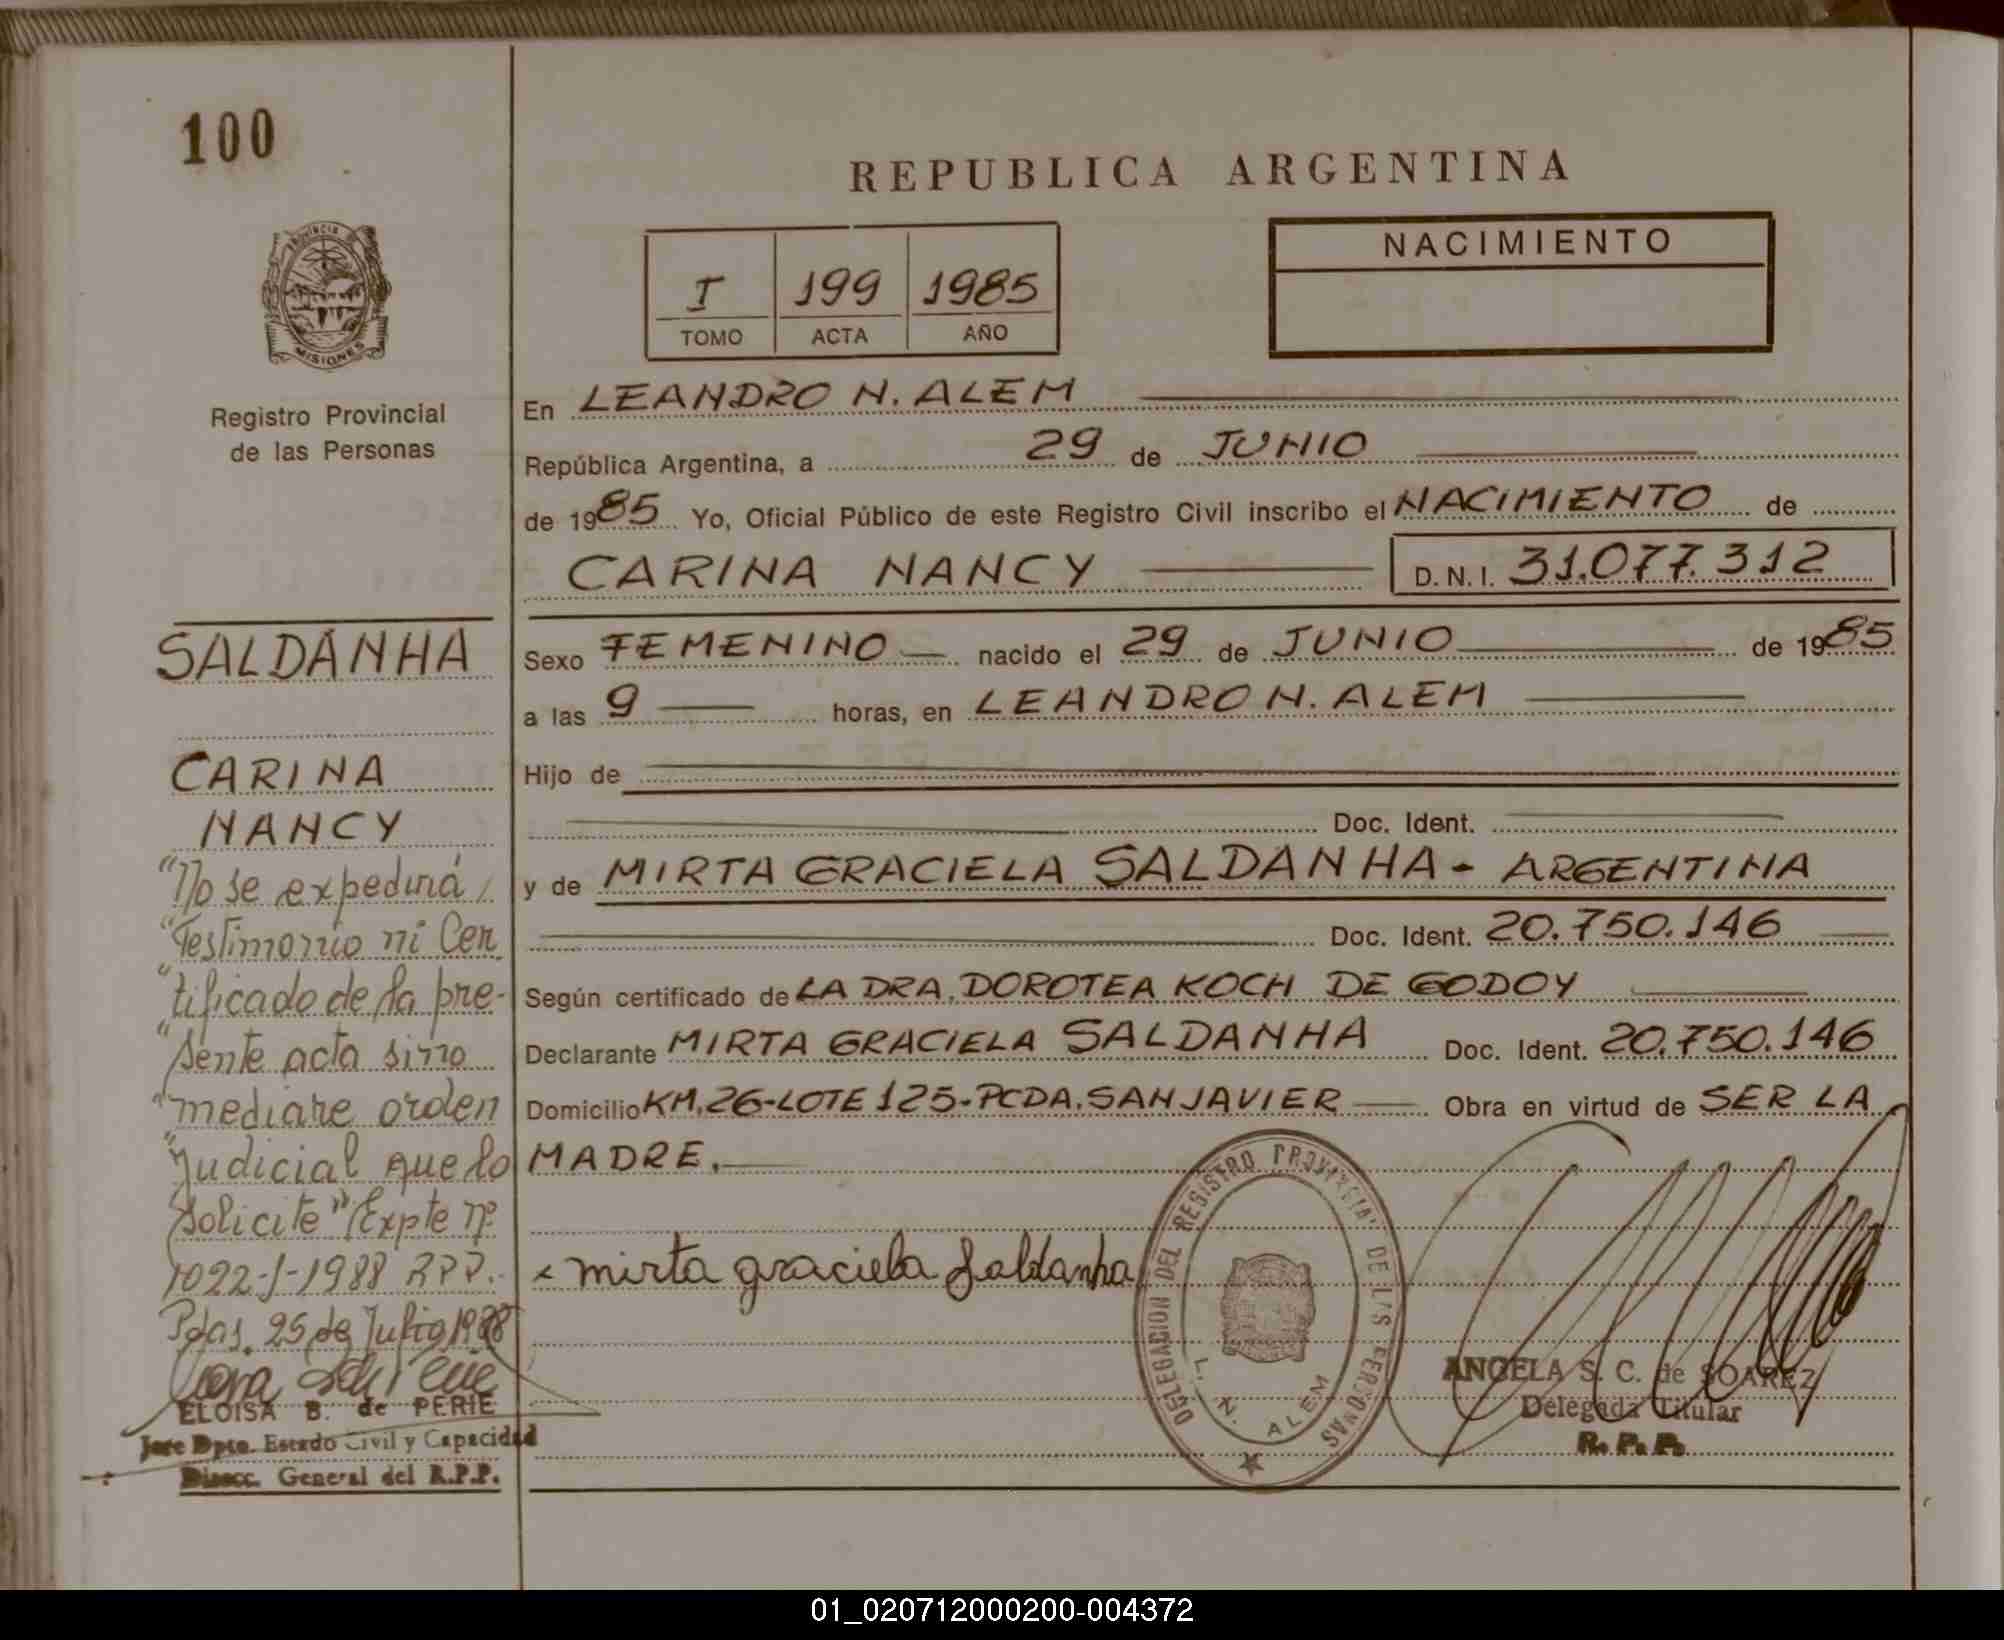 100
REPUBLICA ARGENTINA
NACIMIENTO
I 199 1985
TOMO ACTA AÑO
PROVINCIA DE
MISIONES
Registro Provincial
de las Personas
En LEANDRO N. ALEM
República Argentina, a 29 de JUNIO
de 1985 Yo, Oficial Público de este Registro Civil inscribo el NACIMIENTO de
CARINA NANCY D.N.I. 31.077.312
Sexo FEMENINO nacido el 29 de JUNIO de 1985
a las 9 horas, en LEANDRO N. ALEM
Hijo de
Doc. Ident.
y de MIRTA GRACIELA SALDANHA - ARGENTINA
Doc. Ident. 20.750.146
Según certificado de LA DRA. DOROTEA KOCH DE GODOY
Declarante MIRTA GRACIELA SALDANHA Doc. Ident. 20.750.146
Domicilio KM. 26-LOTE 125-PCDA. SAN JAVIER Obra en virtud de SER LA
MADRE.
mirta graciela Saldanha
DELEGACION DEL REGISTRO PROVINCIAL DE LAS PERSONAS
L. N. ALEM
ANGELA S. C. de SOAREZ
Delegada Titular
R. P. P.
SALDANHA
CARINA
NANCY
"No se expedirá
"Testimonio ni Cer
"tificado de la pre-
"sente acta sino
"mediare orden
"Judicial que lo
solicite" Expte nº
1022-J-1988 RPP.
Pdas. 25 de Julio 1988
ELOISA B. de PERIE
Jefe Dpto. Estado Civil y Capacidad
Direcc. General del R.P.P.
01_020712000200-004372